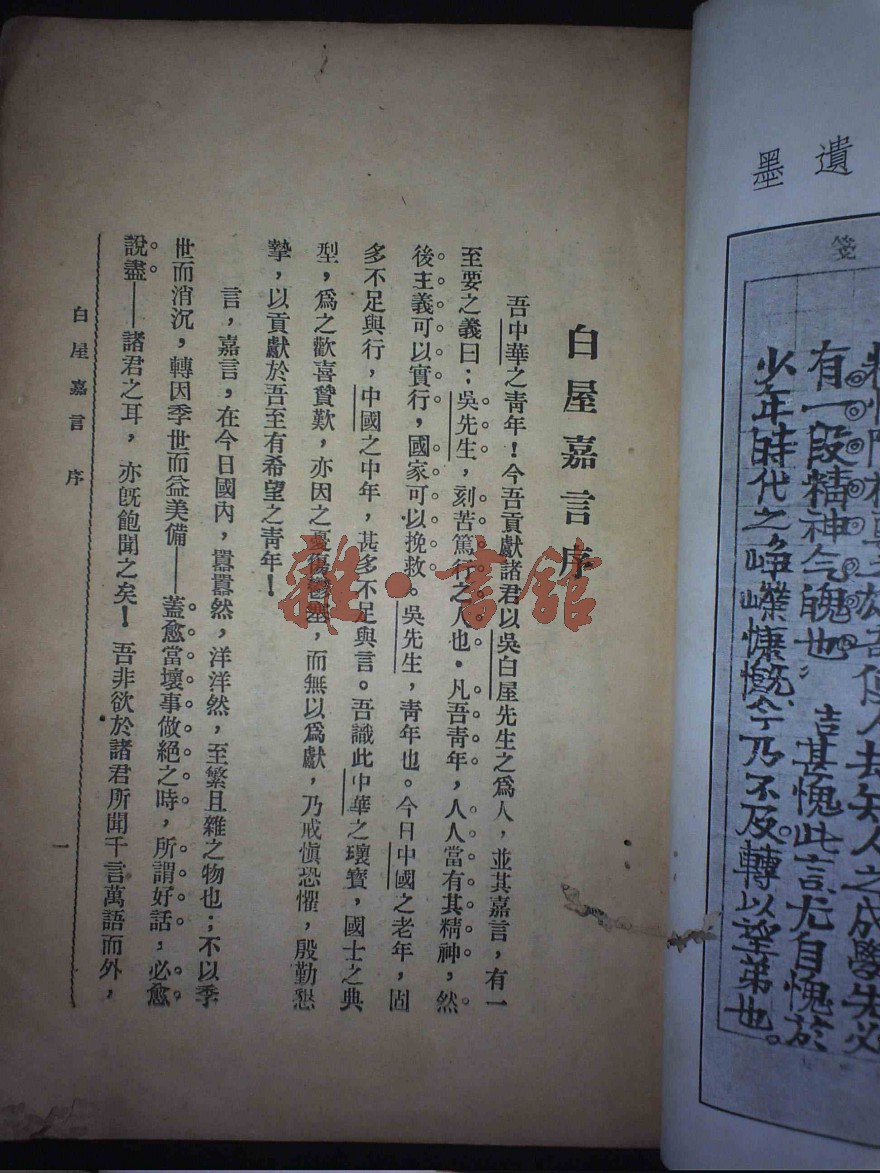 遺墨
箋
有一段精神气魄也 吉甚愧此言尤自愧於
少年時代之崢嶸慷慨今乃不及轉以望弟也。
白屋嘉言序
吾中華之靑年!今吾貢獻諸君以吳白屋先生之爲人,並其嘉言,有一
至要之義曰:吳先生,刻苦篤行之人也。凡吾靑年,人人當有其精神,然
後主義可以實行,國家可以挽救。吳先生,靑年也。今日中國之老年,固
多不足與行,中國之中年,甚多不足與言。吾識此中華之瓌寶,國士之典
型,爲之歡喜贊歎,亦因之憂傷鬱塞,而無以爲獻,乃戒愼恐懼,殷勤懇
摯,以貢獻於吾至有希望之靑年!
言,嘉言,在今日國內,囂囂然,洋洋然,至繁且雜之物也;不以季
世而消沉,轉因季世而益美備——蓋愈當壞事做絕之時,所謂好話,必愈
說盡——諸君之耳,亦旣飽聞之矣!吾非欲於諸君所聞千言萬語而外,
白屋嘉言 序
一
雜·書館